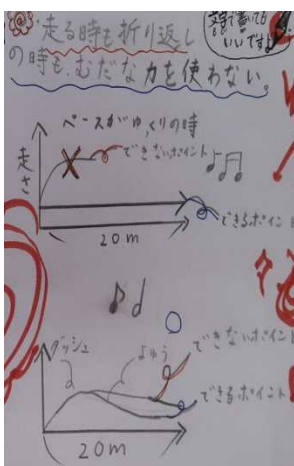 走る時も折り返し
の時も、むだな力を使わない。
いいですよ
ペースがゆっくりの時
できないポイント
走さ
できるポイント
20m
ダッシュ
よゆう
できないポイント
できるポイント
20m